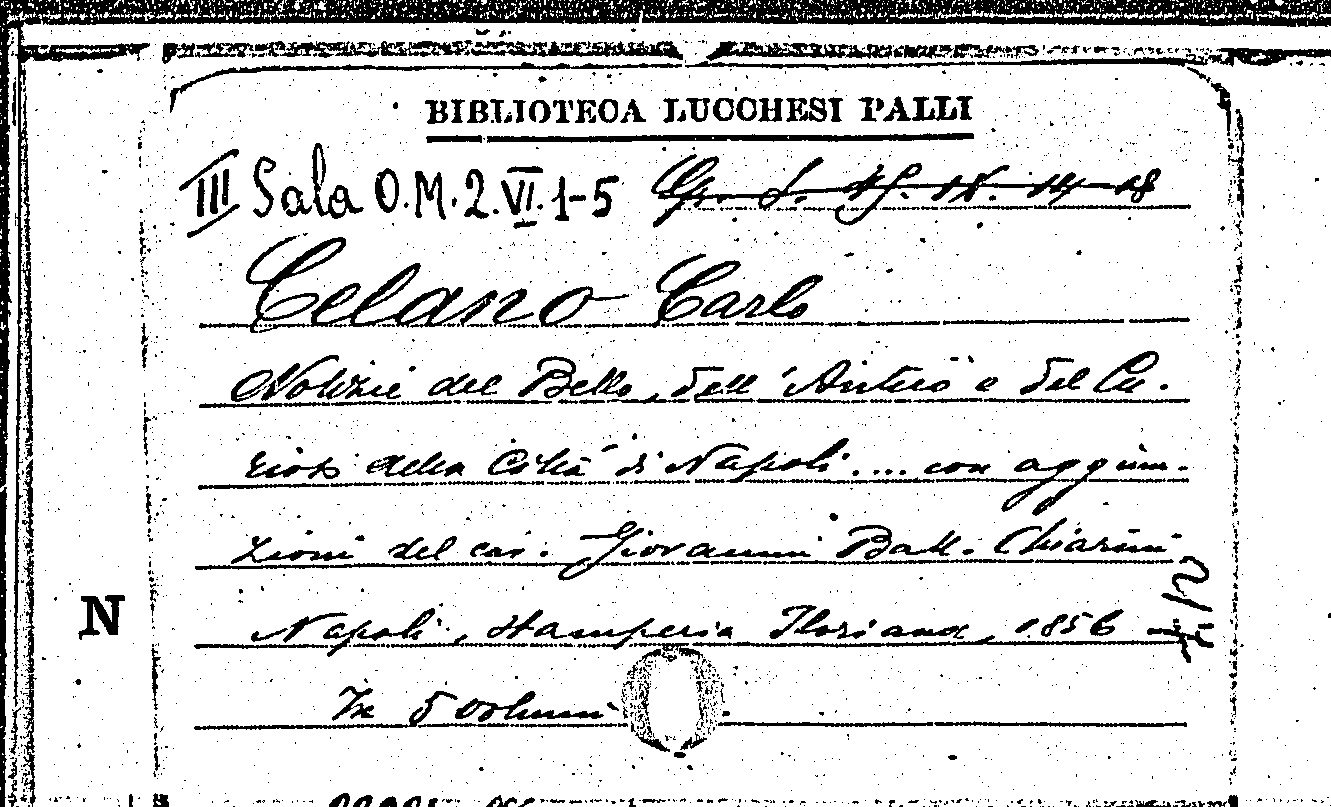 BIBLIOTECA LUCCHESI PALLI
III Sala O.M.2.VI.1-5
Celano Carlo
Notizie del Bello, dell'Antico e del Cu-
riosi della Città di Napoli .... con aggiun-
zioni del cav. Giovanni Batt. Chiarini
Napoli, Stamperia Floriana, 1856
N
In 5 volumi